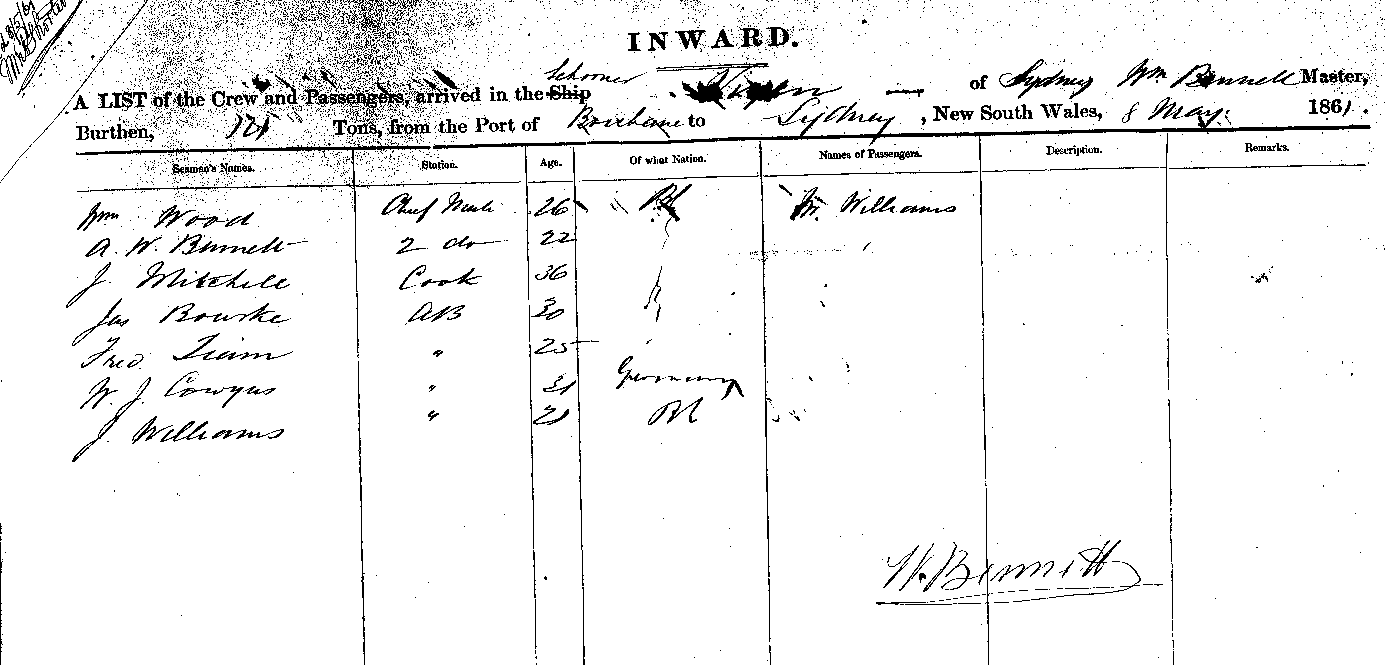 INWARD.
A LIST of the Crew and Passengers, arrived in the Ship Schooner Vixen of Sydney Wm Bennett Master,
Burthen, 121 Tons, from the Port of Brisbane to Sydney, New South Wales, 8 May 1861.
Seamen's Names. Station. Age. Of what Nation. Names of Passengers. Description. Remarks.
Wm Wood Chief Mate 26 Br Mr. Williams
A. W. Bennett 2 do 22
J. Mitchell Cook 36
Jas Bourke AB 30
Fred. " 25
W. J. " 31 Germany
J. Williams " 21 Br
W. Bennett